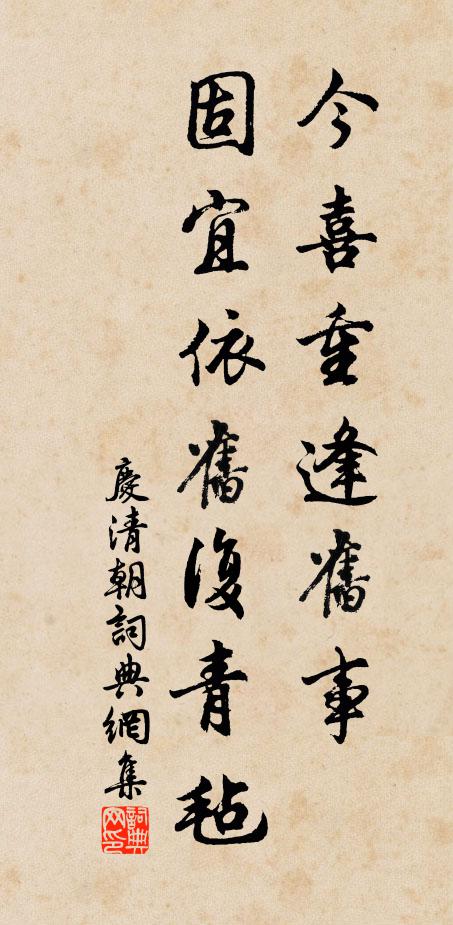 今喜重逢舊事
固宜依舊復青毡
慶清朝詞典網集
詞典
网印